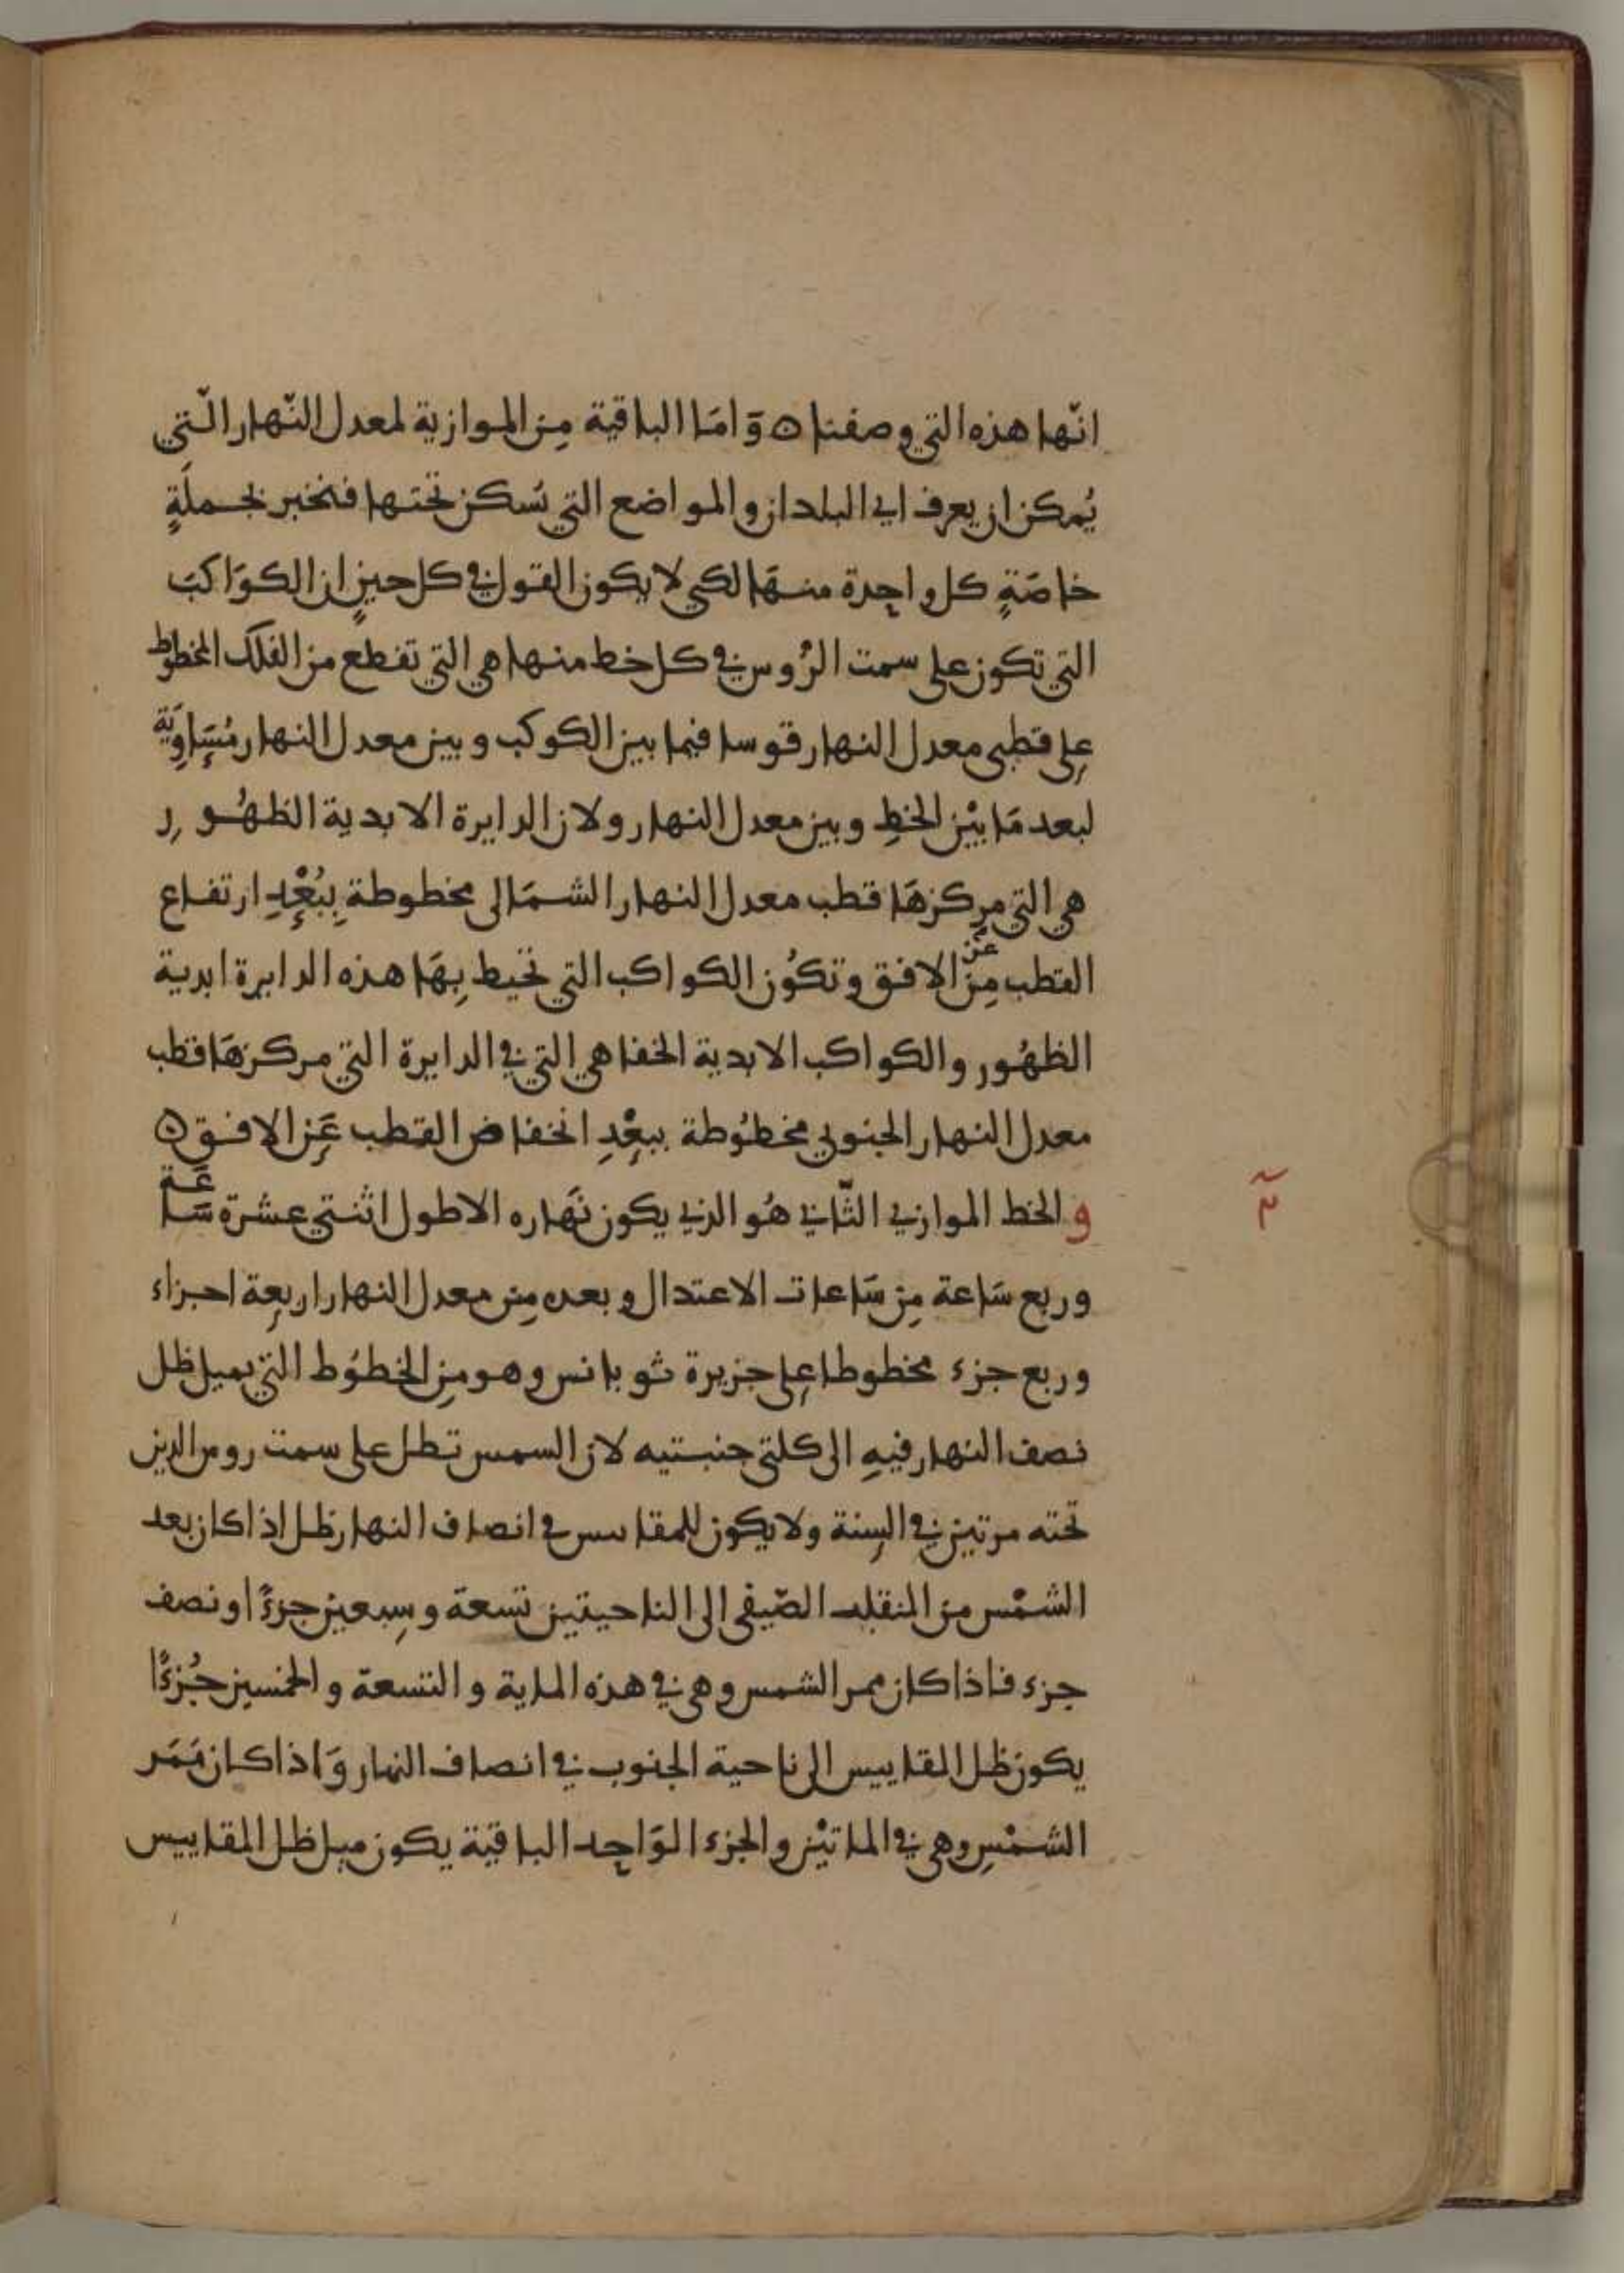 انّها هذه التي وصفنا ٥ وَامَا الباقية مِن الموازية لمعدل النّهار الّتي
يُمكن ان يعرف اي البلدان والمواضع التي تُسكن تحتها فنخبر بجملَةٍ
خاصَةٍ كل واحدة منهَا لكي لا يكون القول في كل حينٍ ان الكوَاكبَ
التي تكون على سمت الرُوس في كل خط منها هي التي تقطع من الفلك المخطوط
على قطبي معدل النهار قوسا فيما بين الكوكب وبين معدل النهار مُسَاوِيَة
لبعد مَا بيْن الخطِ وبين معدل النهار ولان الدايرة الابدية الظهُور
هي التي مركزهَا قطب معدل النهار الشمَالى مخطوطة ببُعْدِ ارتفاع
القطب مِن عن الافق وتكُون الكواكب التي تحيط بِهَا هذه الدايرة ابدية
الظهُور والكواكب الابدية الخفا هي التي في الدايرة التي مركزهَا قطب
معدل النهار الجنوبي مخطُوطة ببعْدِ انخفاض القطب عَن الافق ٥
والخط الموازي الثّاني هُو الذي يكون نهَاره الاطول اثنتي عشرة سَاعَة
وربع سَاعة مِن سَاعات الاعتدال وبعده مِن معدل النهار اربعة اجزاء
وربع جزء مخطوطا على جزيرة ثوبانس وهو مِن الخطُوط التي يميل ظل
نصف النهار فيهِ الى كلتي جنبتيه لان السمس تطل على سمت روس الذين
تحته مرتين في السِنة ولا يكون للمقاسس في انصاف النهار ظل اذا كان بعد
الشمْس من المنقلب الصّيفى الى الناحيتين تسعة وسِبعين جزءً او نصف
جزء فاذا كان ممر الشمس وهى في هذه الماية والتسعة والخمسين جُزءًا
يكون ظل المقاييس الى ناحية الجنوب في انصاف النهار وَاذا كان مَمَر
الشمْسِ وهى في الماتيْن والجزء الوَاحِد الباقيَة يكون ميل ظل المقاييس